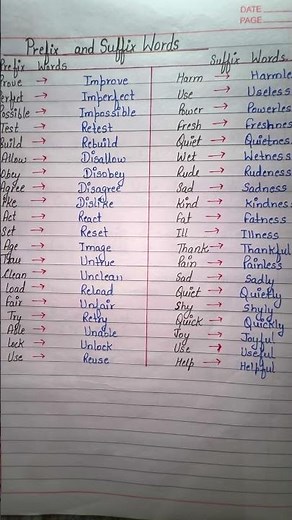 DATE
PAGE
Prefix and Suffix Words
Prefix Words
Prove → Improve
Perfect → Imperfect
Possible → Impossible
Test → Retest
Build → Rebuild
Allow → Disallow
Obey → Disobey
Agree → Disagree
Like → Dislike
Act → React
Set → Reset
Age → Image
True → Untrue
Clean → Unclean
Load → Reload
Fair → Unfair
Try → Retry
Able → Unable
Lock → Unlock
Use → Reuse
Suffix Words
Harm → Harmle
Use → Useless
Power → Powerles
Fresh → Freshnes
Quiet → Quietness
Wet → Wetness
Rude → Rudeness
Sad → Sadness
Kind → Kindness
Fat → Fatness
Ill → Illness
Thank → Thankful
Pain → Painless
Sad → Sadly
Quiet → Quietly
Shy → Shyly
Quick → Quickly
Joy → Joyful
Use → Useful
Help → Helpful